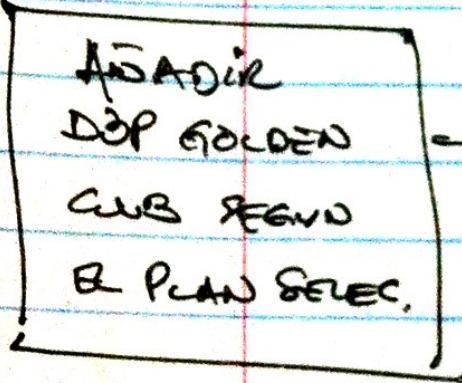 AÑADIR
D3P GOLDEN
CLUB SEGUN
EL PLAN SELEC.